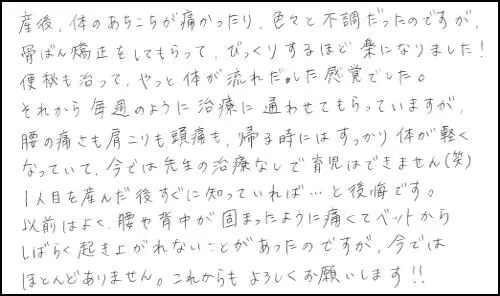 産後、体のあちこちが痛かったり、色々と不調だったのですが、
骨ばん矯正をしてもらって、びっくりするほど楽になりました!
便秘も治って、やっと体が流れだ。した感覚でした。
それから毎週のように治療に通わせてもらっていますが、
腰の痛さも肩こりも頭痛も、帰る時にはすっかり体が軽く
なっていて、今では先生の治療なしで育児はできません(笑)
1人目を産んだ後すぐに知っていれば…と後悔です。
以前はよく、腰や背中が固まったように痛くてベットから
しばらく起き上がれないことがあったのですが、今では
ほとんどありません。これからもよろしくお願いします!!